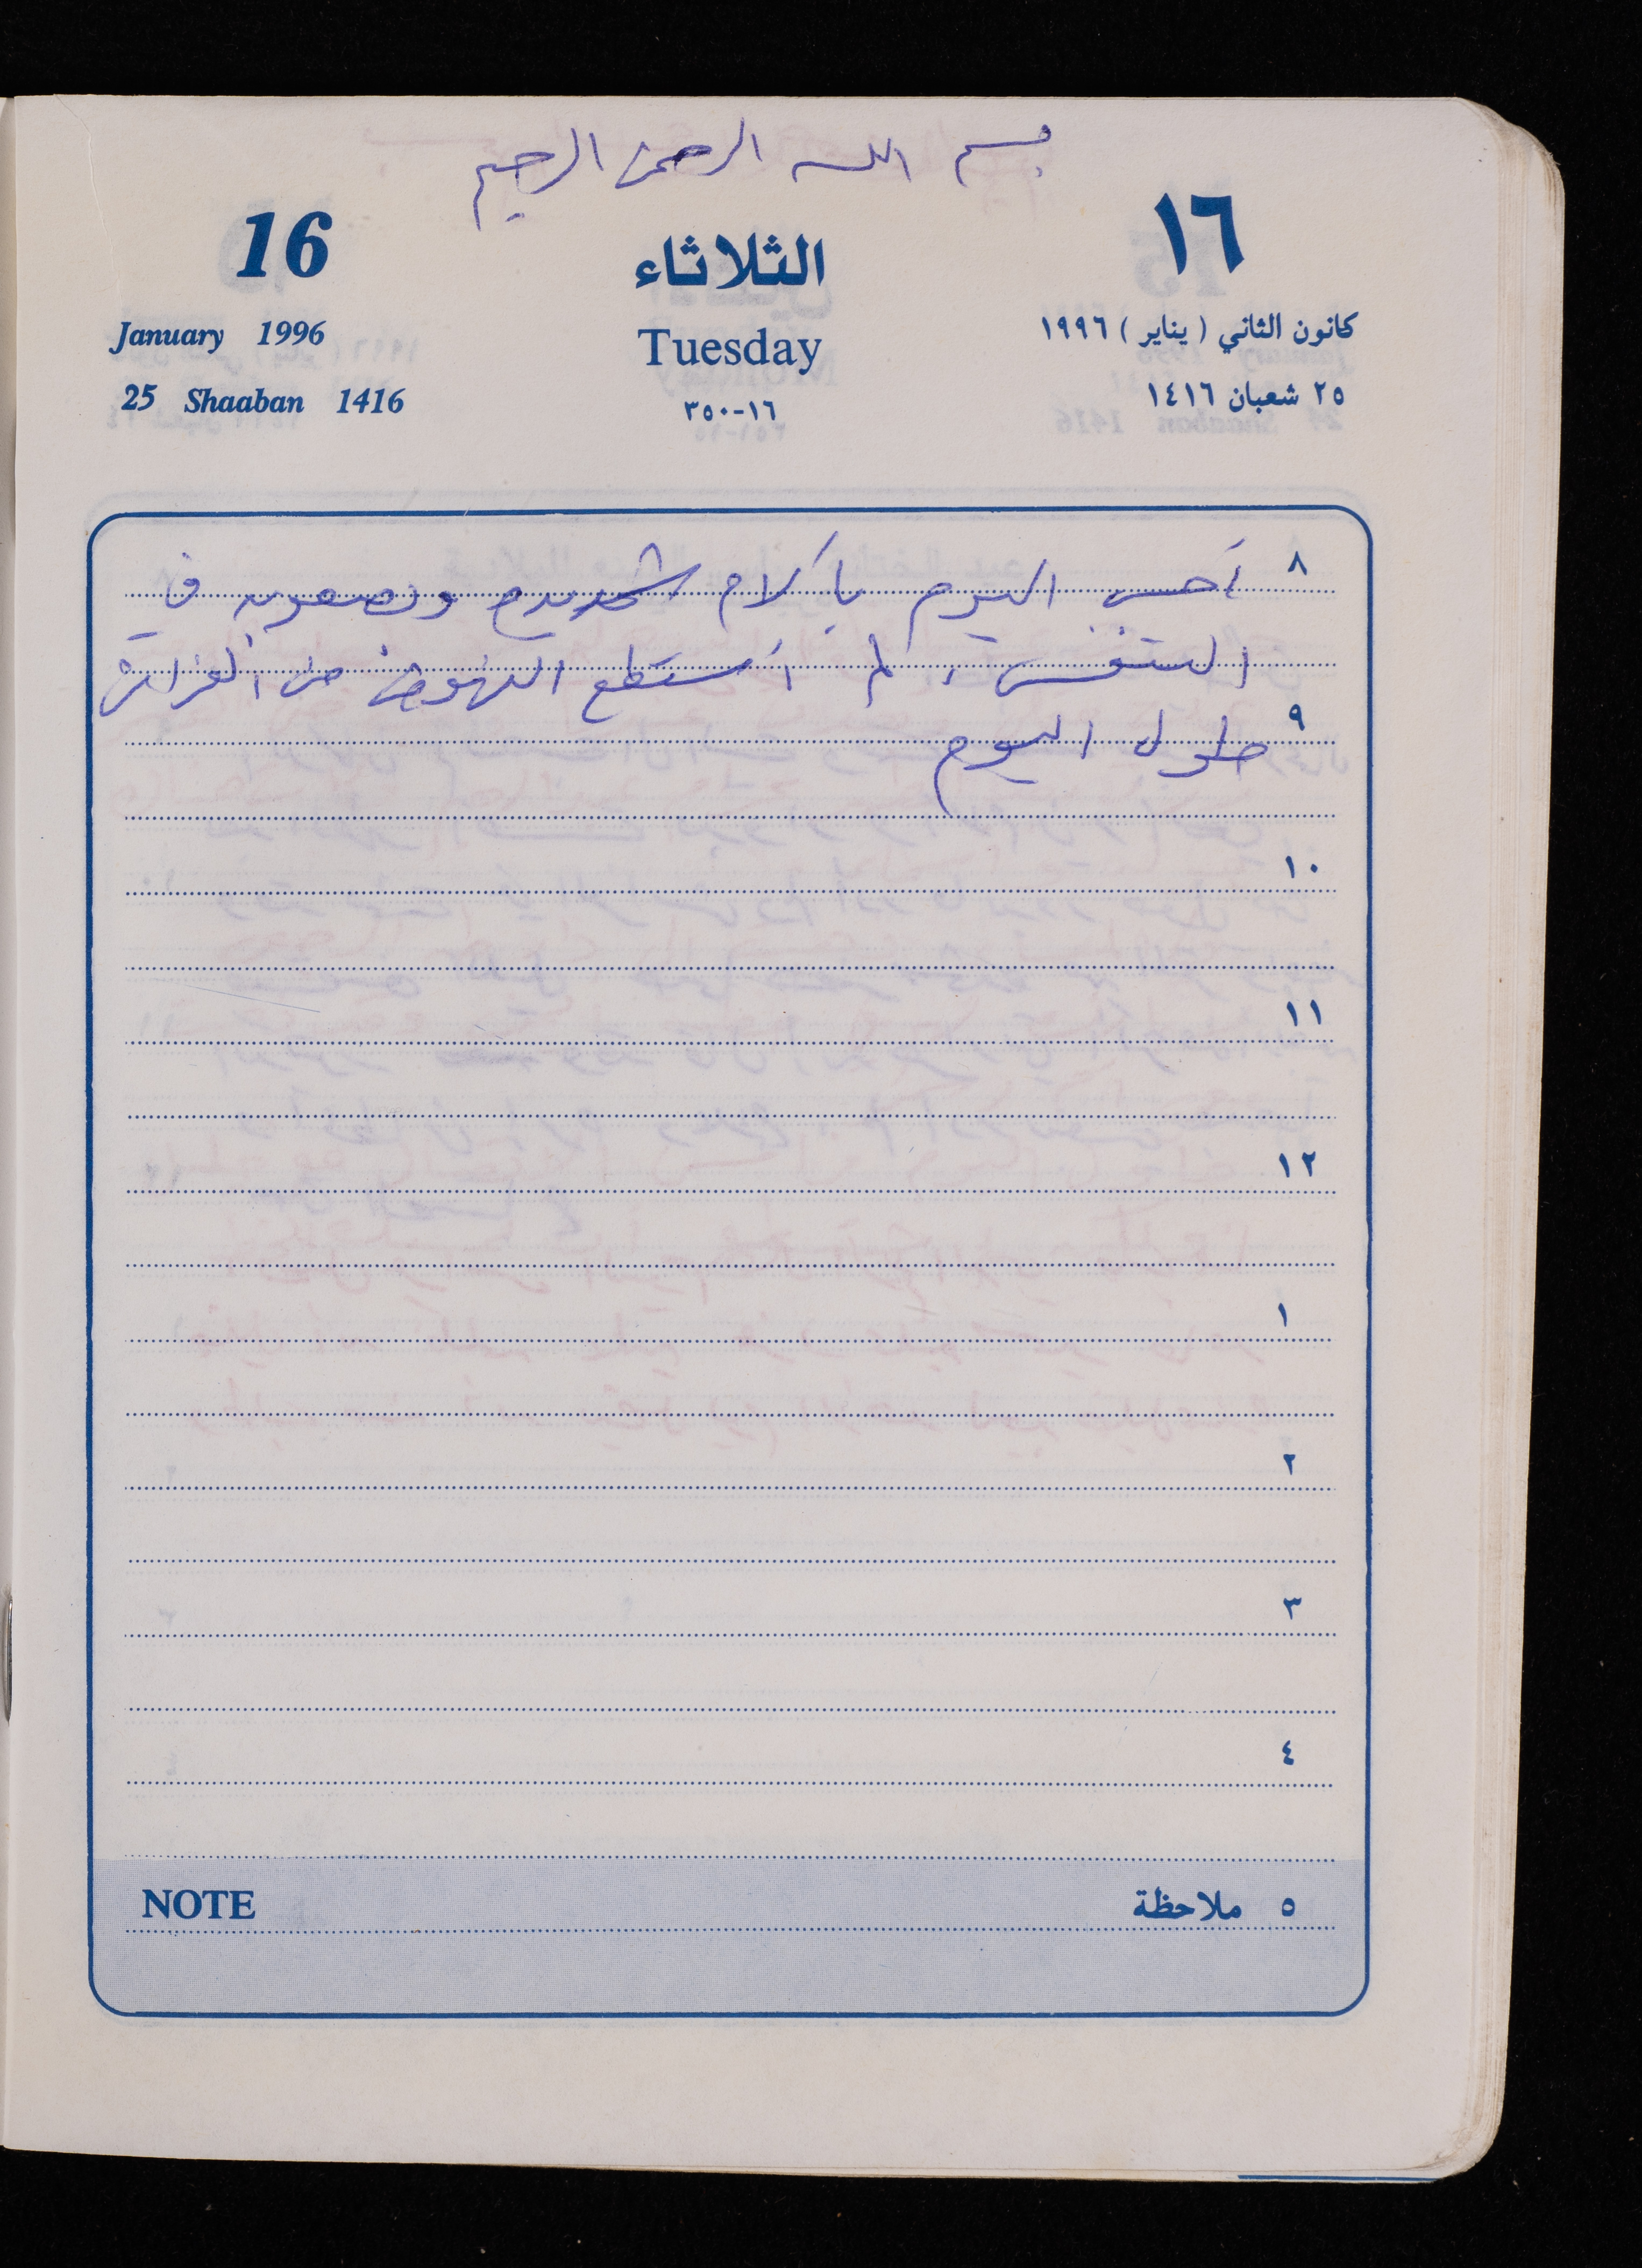 بسم الله الرحمن الرحيم
16 الثلاثاء ١٦
January 1996 Tuesday كانون الثاني ( يناير ) ١٩٩٦
25 Shaaban 1416 ١٦-٣٥٠ ٢٥ شعبان ١٤١٦
٨ أحس اليوم بآلام شديدة وبصعوبة في
التنفس، لم أستطع النهوض من الفراش
٩ طول اليوم
١٠
١١
١٢
١
٢
٣
٤
NOTE ٥ ملاحظة